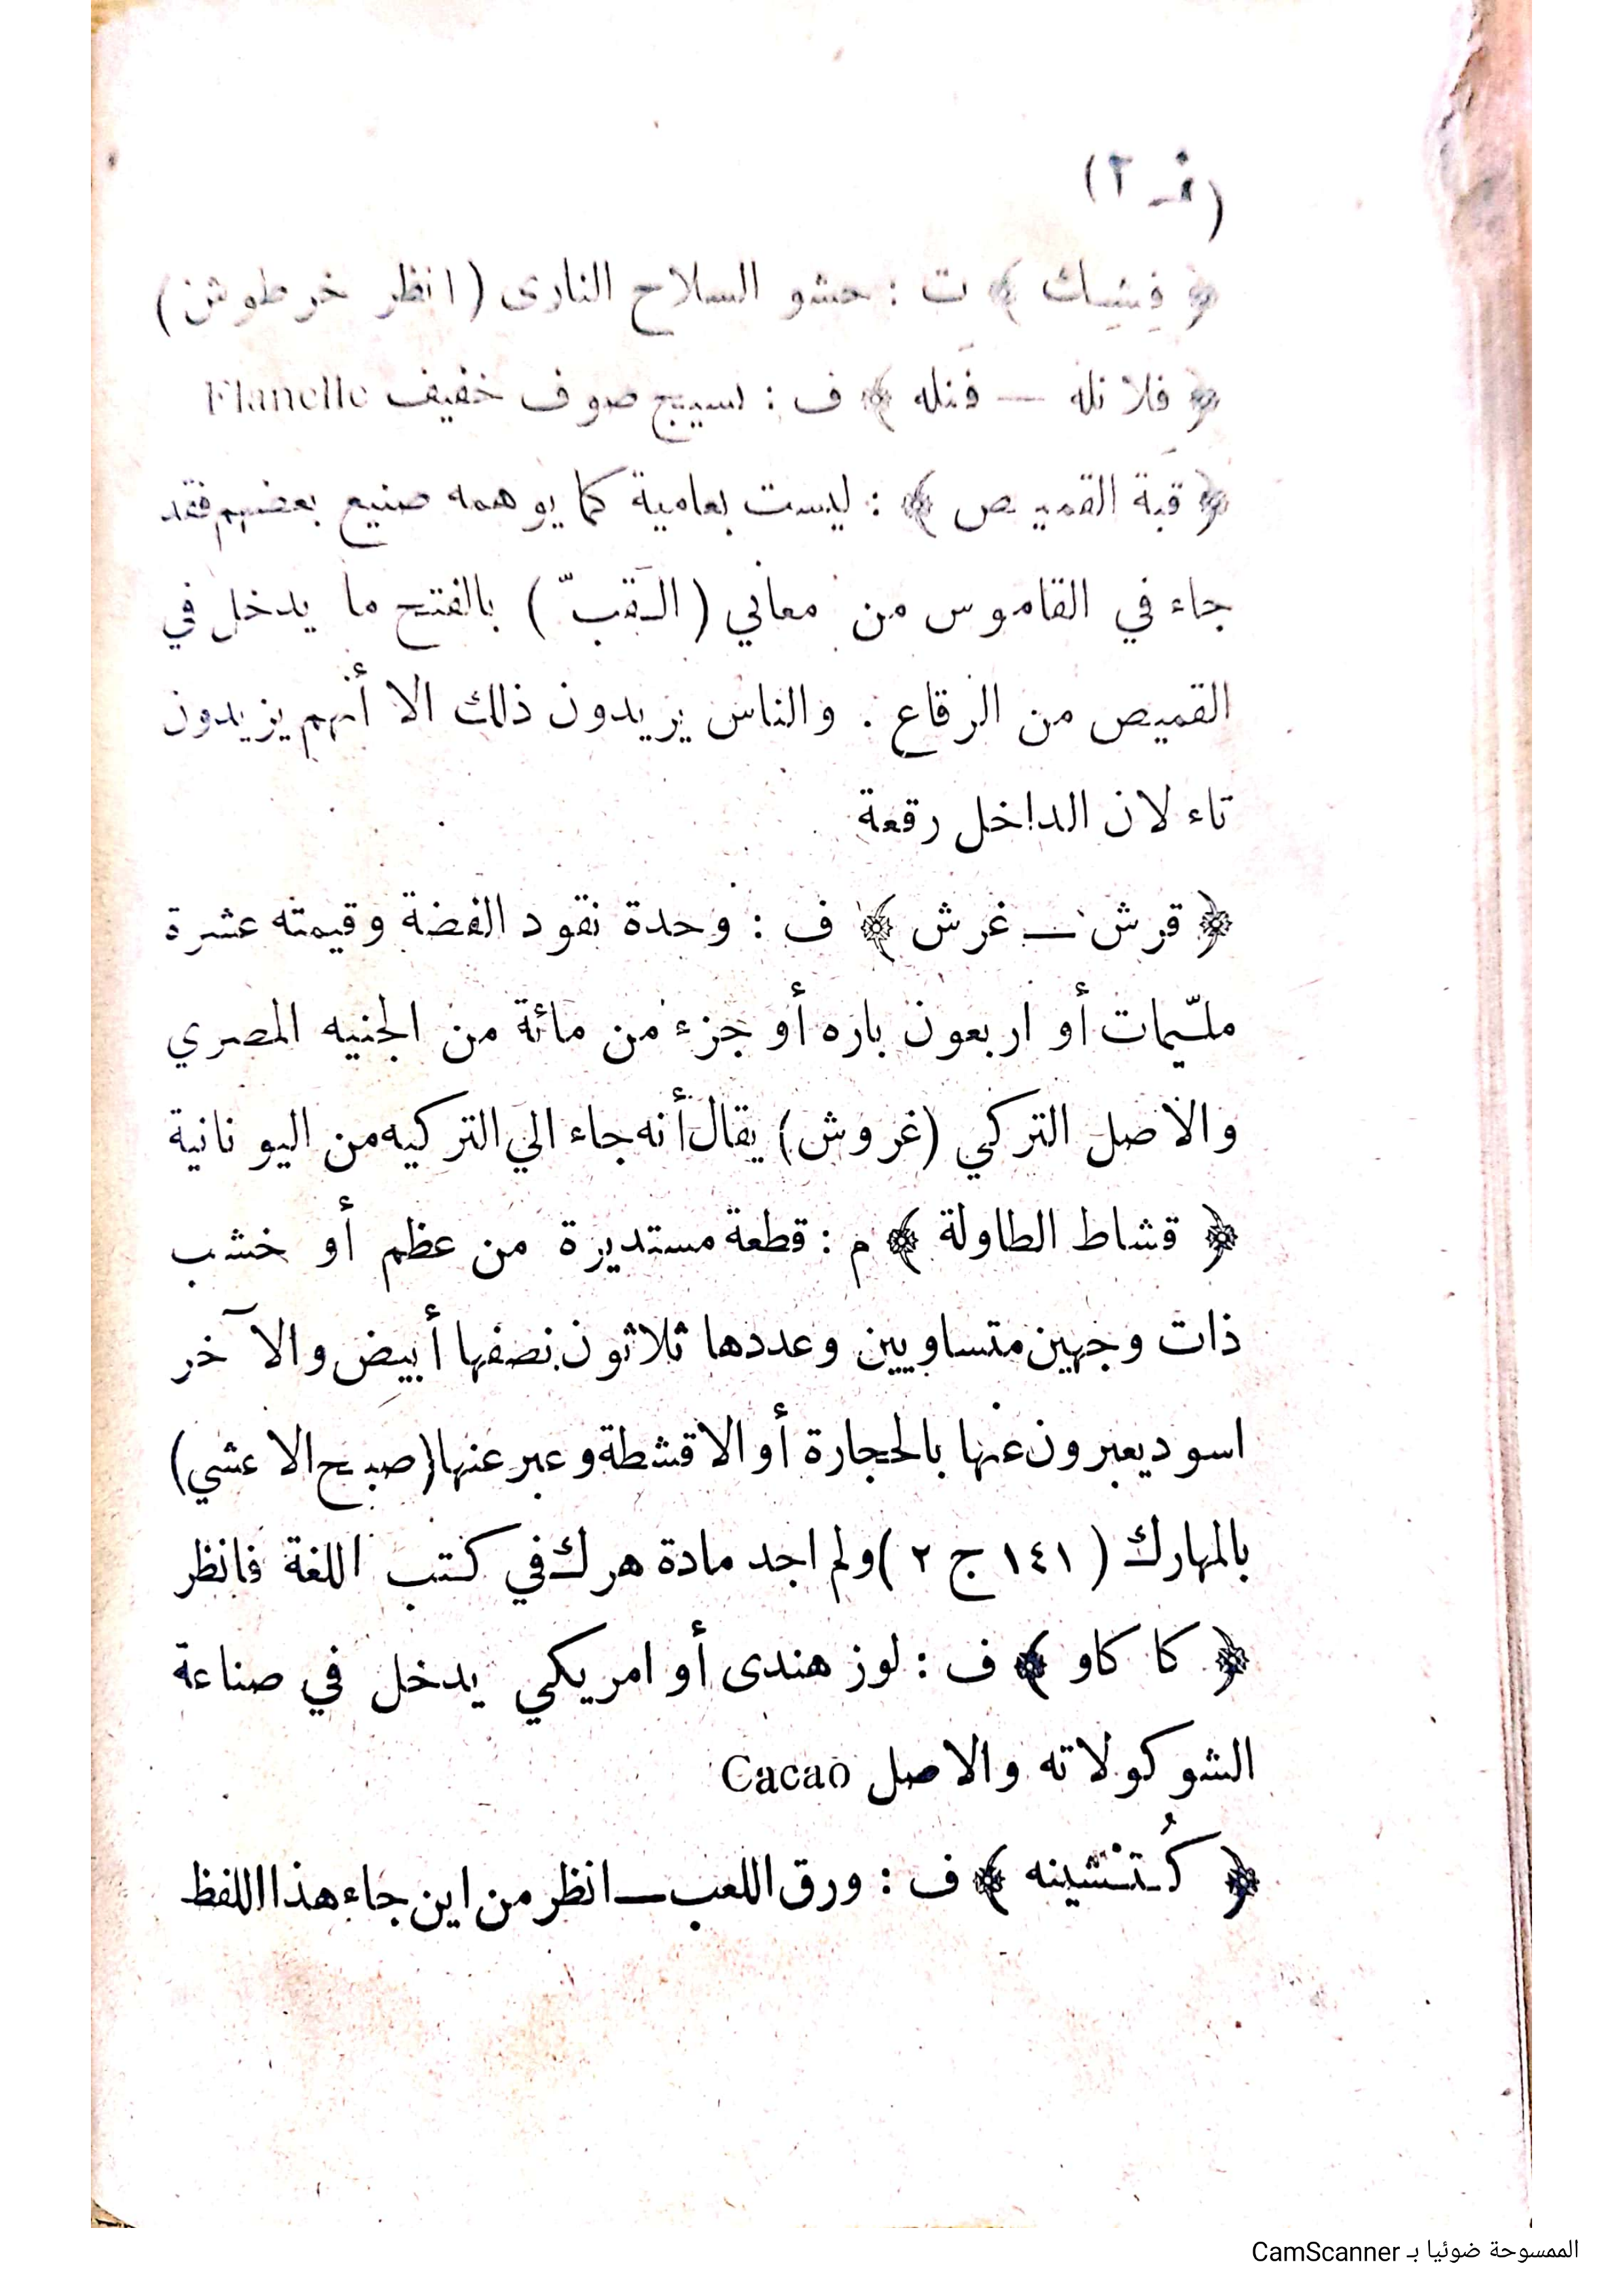 (ف ـ ٢)
﴿ فِشِك ﴾ ت : حشو السلاح النارى (انظر خرطوش)
﴿ فلانله — فَنله ﴾ ف : نسيج صوف خفيف Flanelle
﴿ قَبة القميص ﴾ : ليست بعامية كما يوهمه صنيع بعضهم فقد
جاء في القاموس من معاني ( القَبّ ) بالفتح ما يدخل في
القميص من الرقاع . والناس يريدون ذلك الا أنهم يزيدون
تاء لان الداخل رقعة
﴿ قرش — غرش ﴾ ف : وحدة نقود الفضة وقيمته عشرة
ملّيمات أو اربعون باره أو جزء من مائة من الجنيه المصري
والاصل التركي (غروش) يقال أنه جاء الي التركيه من اليونانية
﴿ قشاط الطاولة ﴾ م : قطعة مستديرة من عظم أو خشب
ذات وجهين متساويين وعددها ثلاثون نصفها أبيض والآخر
اسود يعبرون عنها بالحجارة أو الاقشطة وعبر عنها (صبح الاعشي)
بالمهارك ( ١٤١ ج ٢ ) ولم اجد مادة هرك في كتب اللغة فانظر
﴿ كاكاو ﴾ ف : لوز هندى أو امريكي يدخل في صناعة
الشوكولاته والاصل Cacao
﴿ كُتشينه ﴾ ف : ورق اللعب — انظر من اين جاء هذا اللفظ
الممسوحة ضوئيا بـ CamScanner